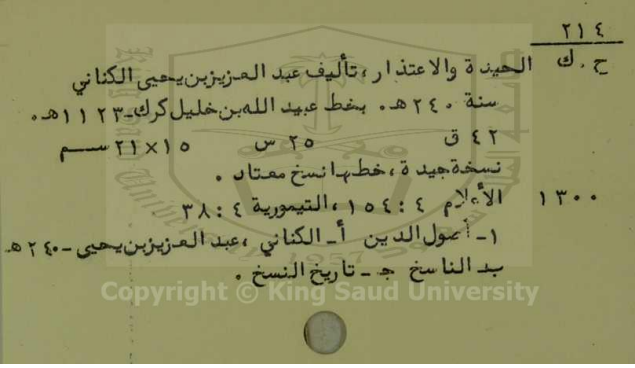 ٢١٤
ح. ك الحيدة والاعتذار، تأليف عبد العزيز بن يحيى الكناني
سنة ٢٤٠ هـ. بخط عبيد الله بن خليل كرك ـ ١١٢٣ هـ.
٤٢ ق ٢٥ س ١٥×٢١ سم
نسخة جيدة، خطها نسخ معتاد.
١٣٠٠ الأعلام ٤: ١٥٤، التيمورية ٤: ٣٨
١ـ أصول الدين أـ الكناني، عبد العزيز بن يحيى ـ ٢٤٠ هـ
بـ الناسخ جـ ـ تاريخ النسخ.
Copyright © King Saud University